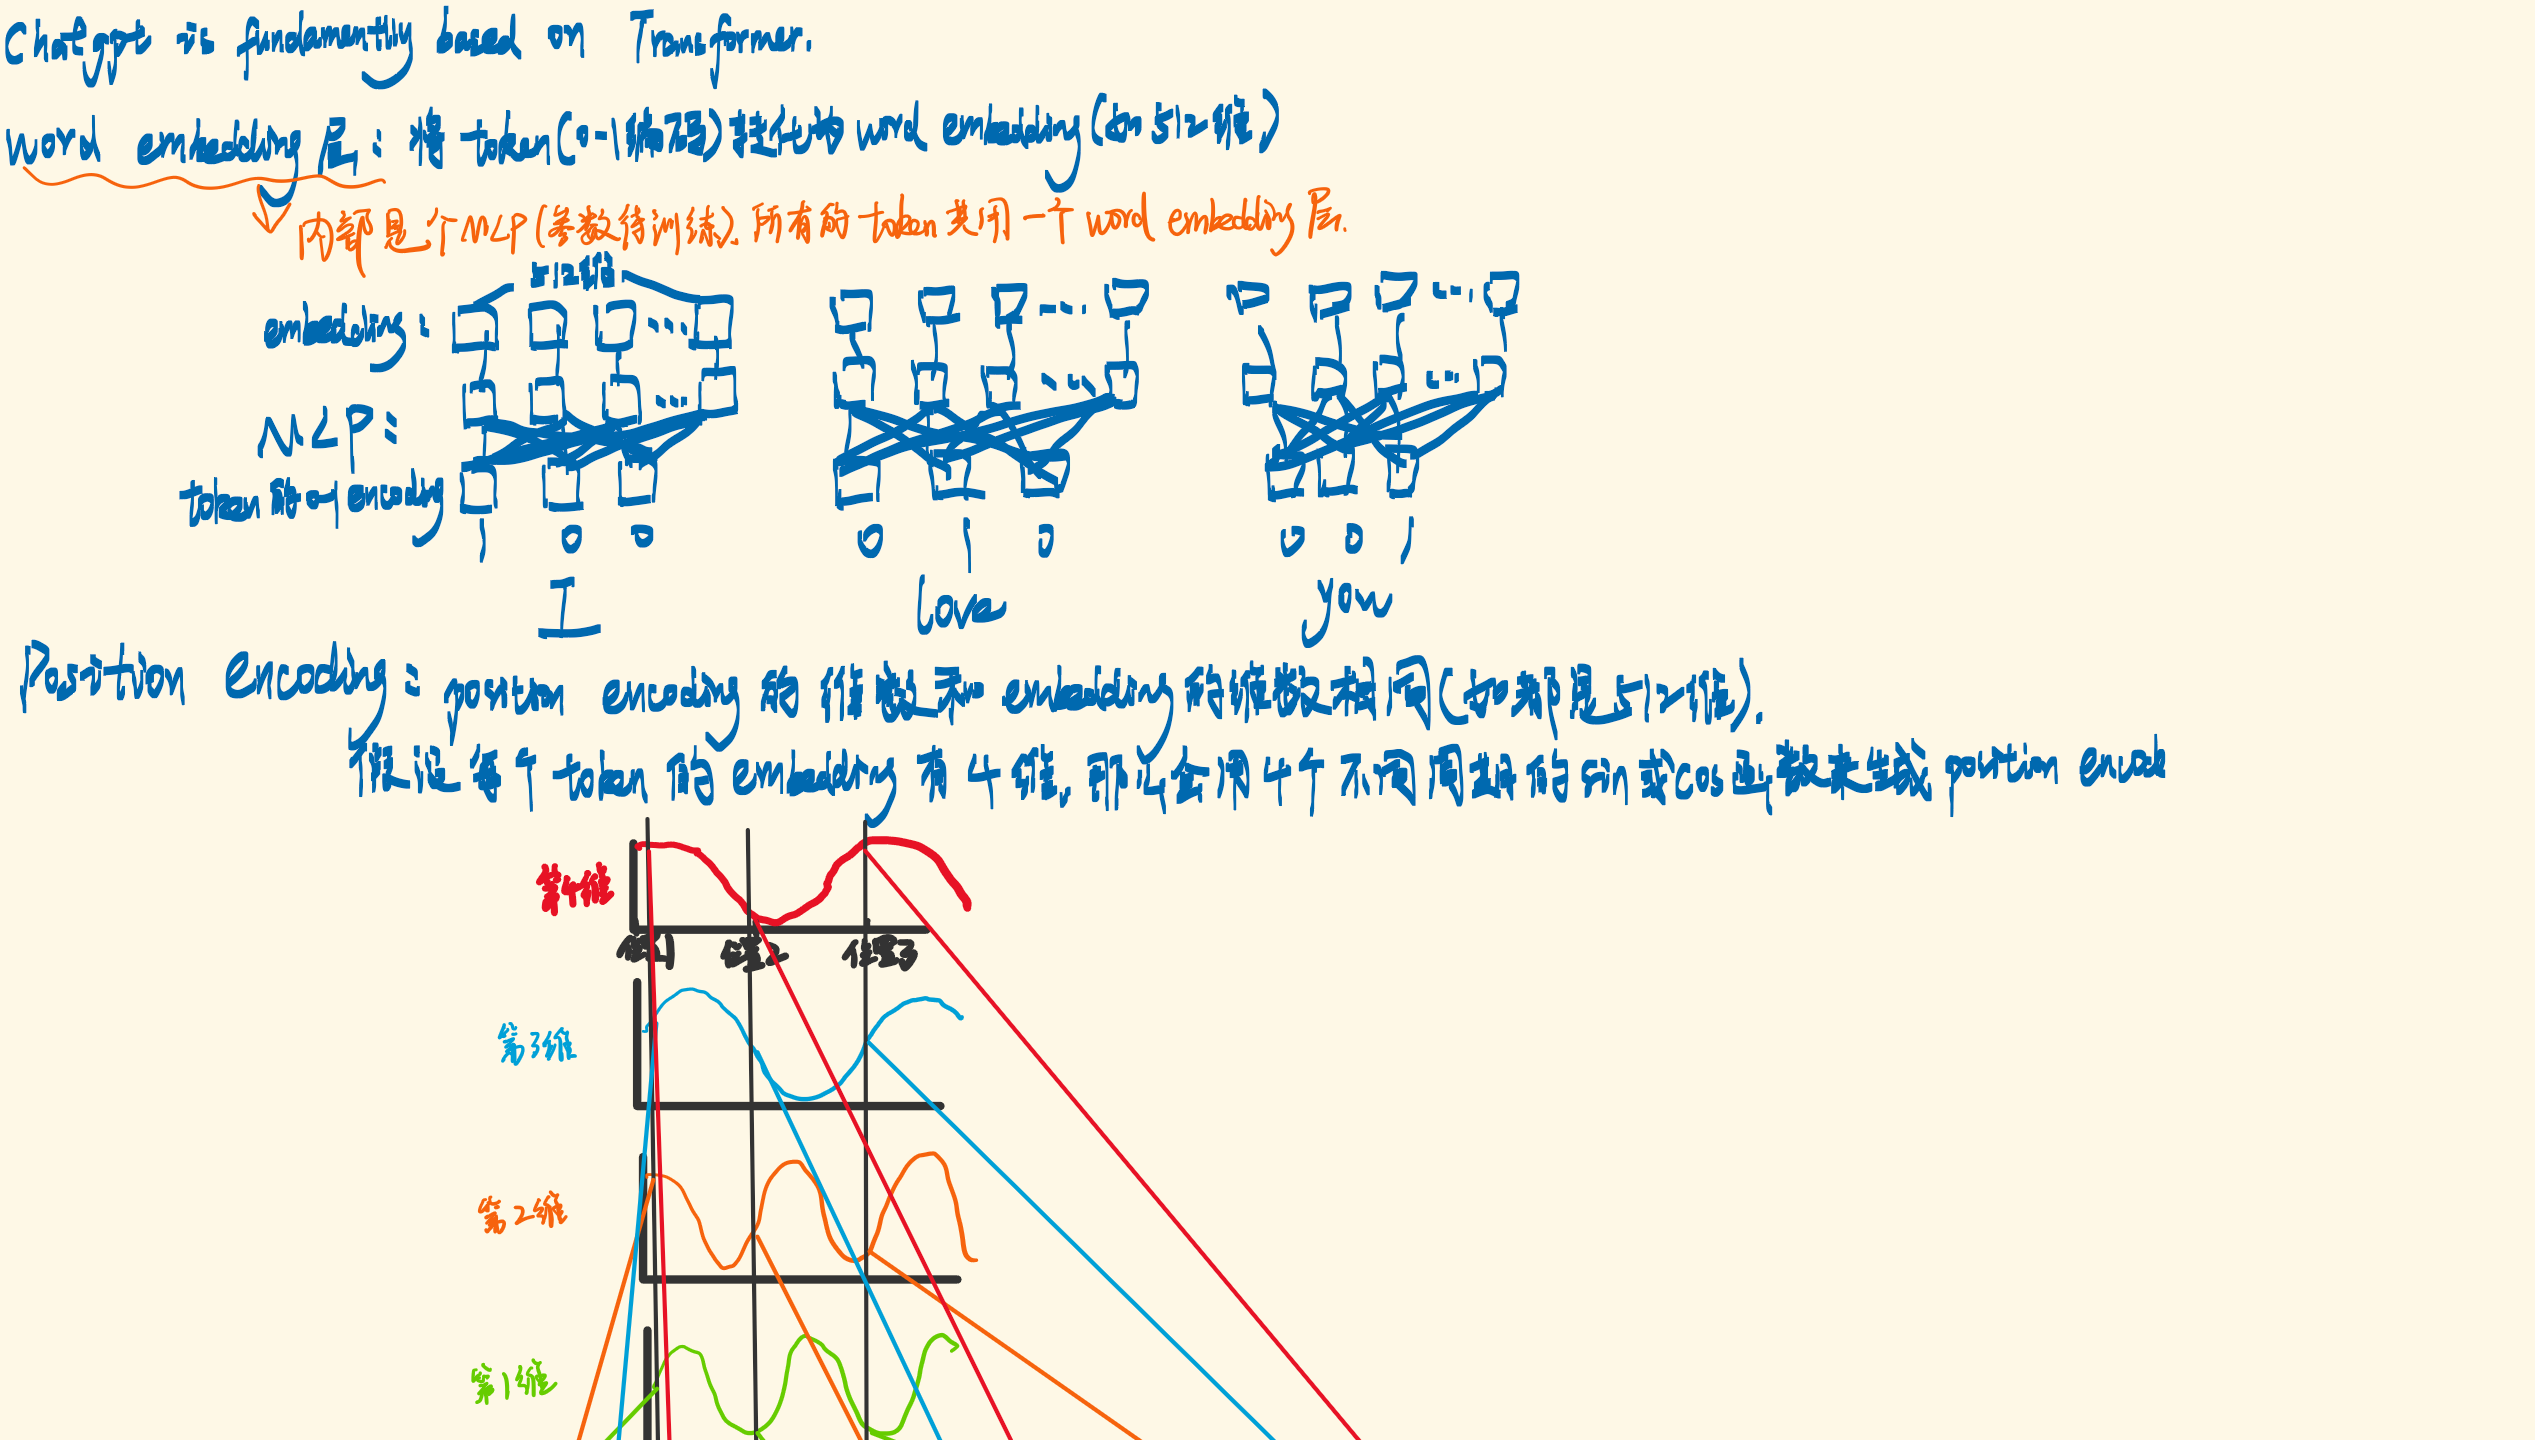 Chatgpt is fundamentlly based on Transformer.
word embedding层：将token(0-1编码)转化为word embedding(如512维)
内部是个MLP(参数待训练).所有的token共用一个word embedding层.
512维
embedding：
MLP：
token的0-1 encoding
1 0 0 0 1 0 0 0 1
I love you
Position encoding：position encoding的维数和embedding的维数相同(如都是512维).
假设每个token的embedding有4维.那么会用4个不同周期的sin或cos函数来生成position encod
第4维
位置1 位置2 位置3
第3维
第2维
第1维